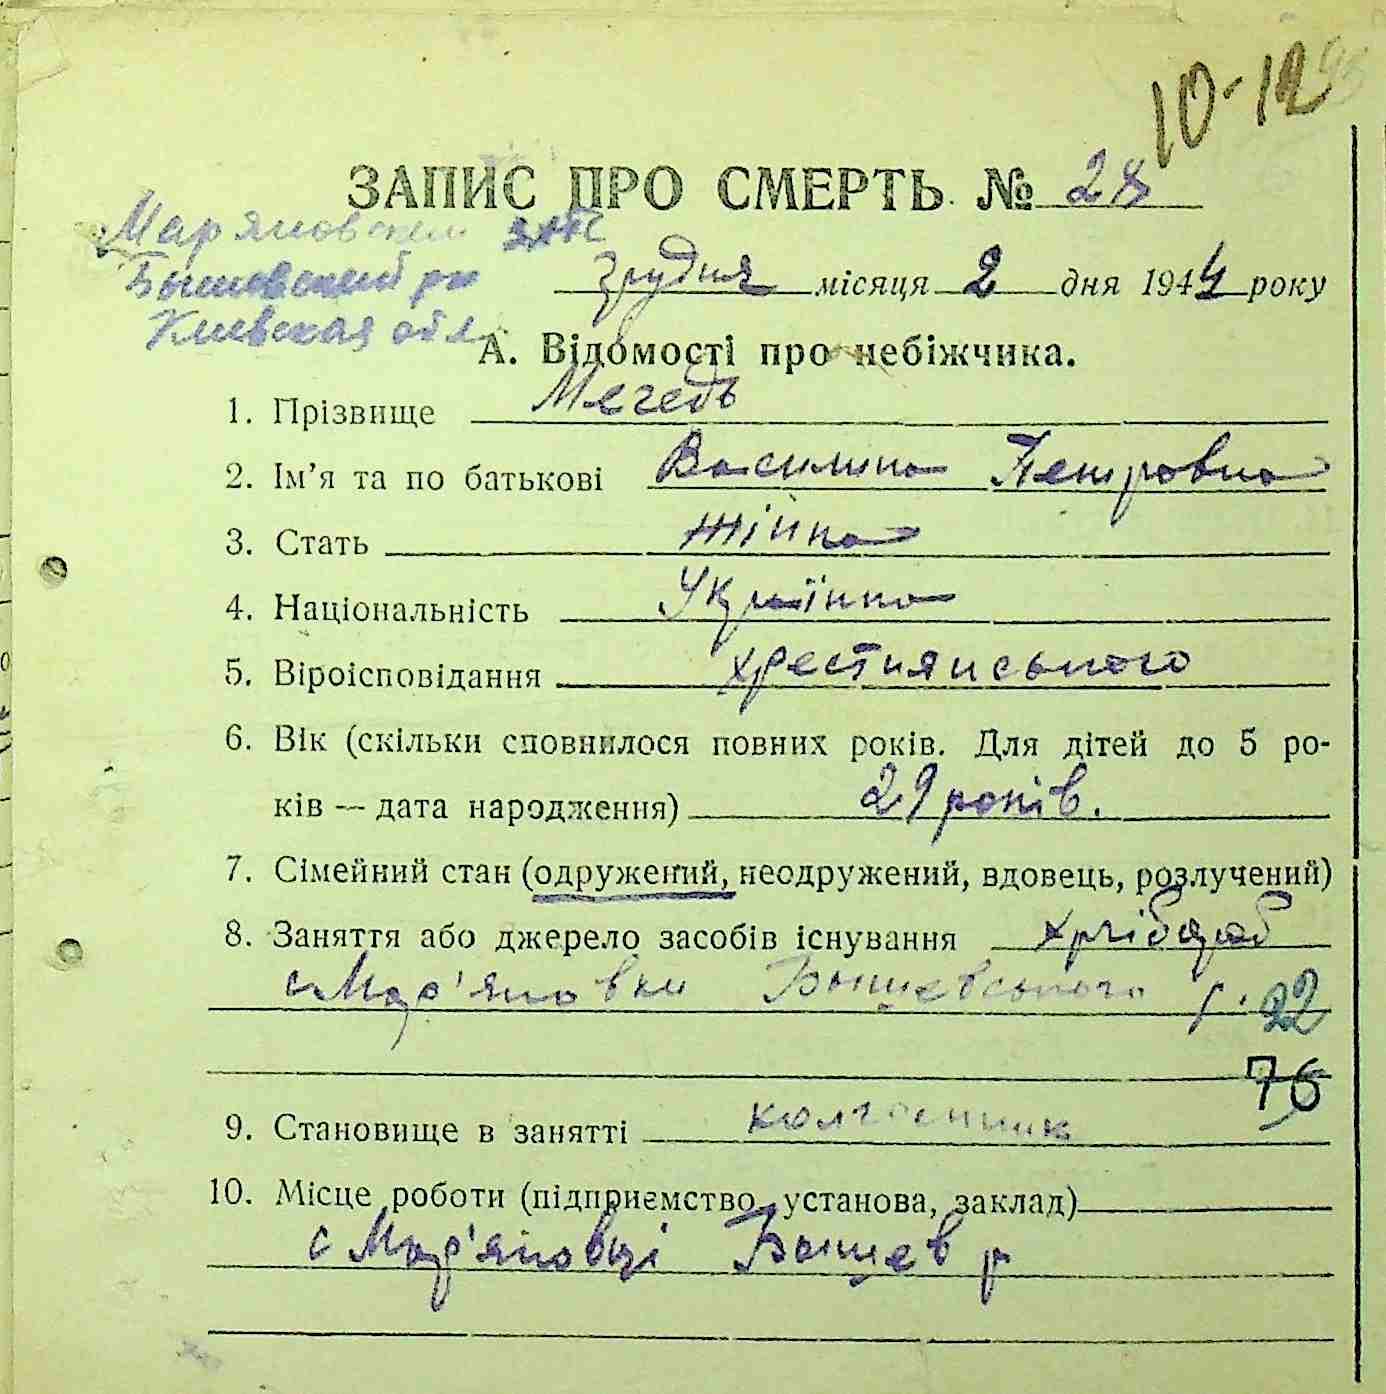 10-12
ЗАПИС ПРО СМЕРТЬ № 28
Мар'яновский ЗАГС
Бышевский рн
Киевская обл
грудня місяця 2 дня 1944 року
А. Відомості про небіжчика.
1. Прізвище Мегедь
2. Ім'я та по батькові Василина Петровна
3. Стать жінка
4. Національність Українка
5. Віроісповідання хрестиянського
6. Вік (скільки сповнилося повних років. Для дітей до 5 ро-
ків — дата народження) 29 років.
7. Сімейний стан (одружений, неодружений, вдовець, розлучений)
8. Заняття або джерело засобів існування хлібороб
с Мар'яновки Бышевського р. 22
76
9. Становище в занятті колгоспник
10. Місце роботи (підприємство, установа, заклад)
с Мар'яновці Бышев р